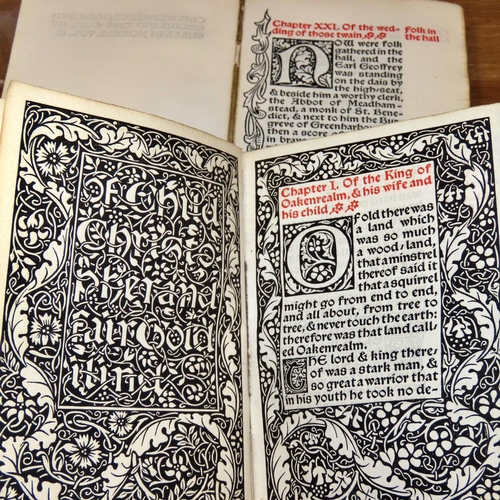 Chapter XXI. Of the wed-
ding of those twain
Folk in
the hall
NOW were folk
gathered in the
hall, and the
Earl Geoffrey
was standing
on the dais by
the high-seat,
& beside him a worthy clerk,
the Abbot of Meadham-
stead, a monk of St. Bene-
dict, & next to him the Bur-
greve of Greenharbour, &
then a score
in brave
Of Child
Christo
pher and
Fair Gold
ilind
Chapter I. Of the King of
Oakenrealm, & his wife and
his child
Of old there was
a land which
was so much
a wood-land,
that a minstrel
thereof said it
that a squirrel
might go from end to end,
and all about, from tree to
tree, & never touch the earth:
therefore was that land call-
ed Oakenrealm.
THE lord & king there-
of was a stark man, &
so great a warrior that
in his youth he took no de-